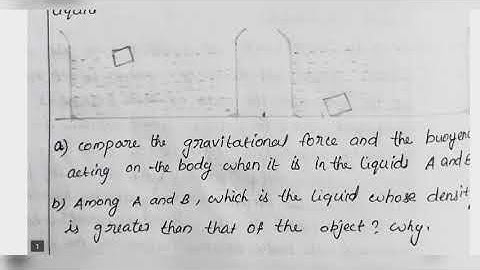 liquid
a) compare the gravitational force and the buoyen
acting on the body when it is in the liquids A and B
b) Among A and B, which is the liquid whose densit
is greater than that of the object? why.
1